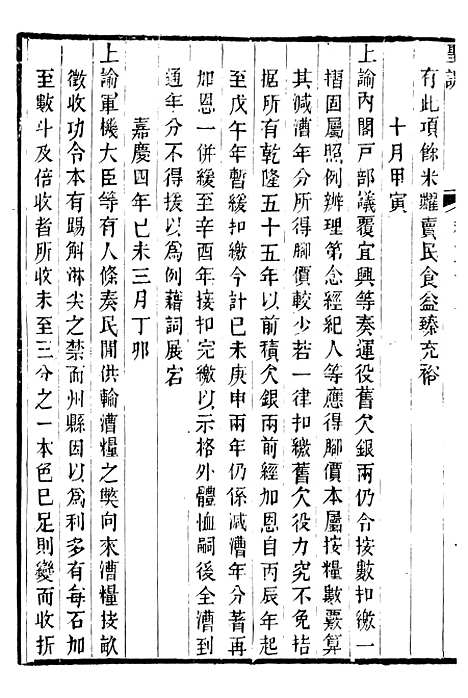 聖訓
有此項餘米糶賣民食益臻充裕
十月甲寅
上諭內閣戶部議覆宜興等奏運役舊欠銀兩仍令按數扣繳一
摺固屬照例辦理第念經紀人等應得腳價本屬按糧數覈算
其減漕年分所得腳價較少若一律扣繳舊欠役力究不免拮
据所有乾隆五十五年以前積欠銀兩前經加恩自丙辰年起
至戊午年暫緩扣繳今計己未庚申兩年仍係減漕年分著再
加恩一併緩至辛酉年接扣完繳以示格外體恤嗣後全漕到
通年分不得援以爲例藉詞展宕
嘉慶四年己未三月丁卯
上諭軍機大臣等有人條奏民間供輸漕糧之獘向來漕糧按畝
徵收功令本有踢斛淋尖之禁而州縣因以爲利多有每石加
至數斗及倍收者所收未至三分之一本色已足則變而收折